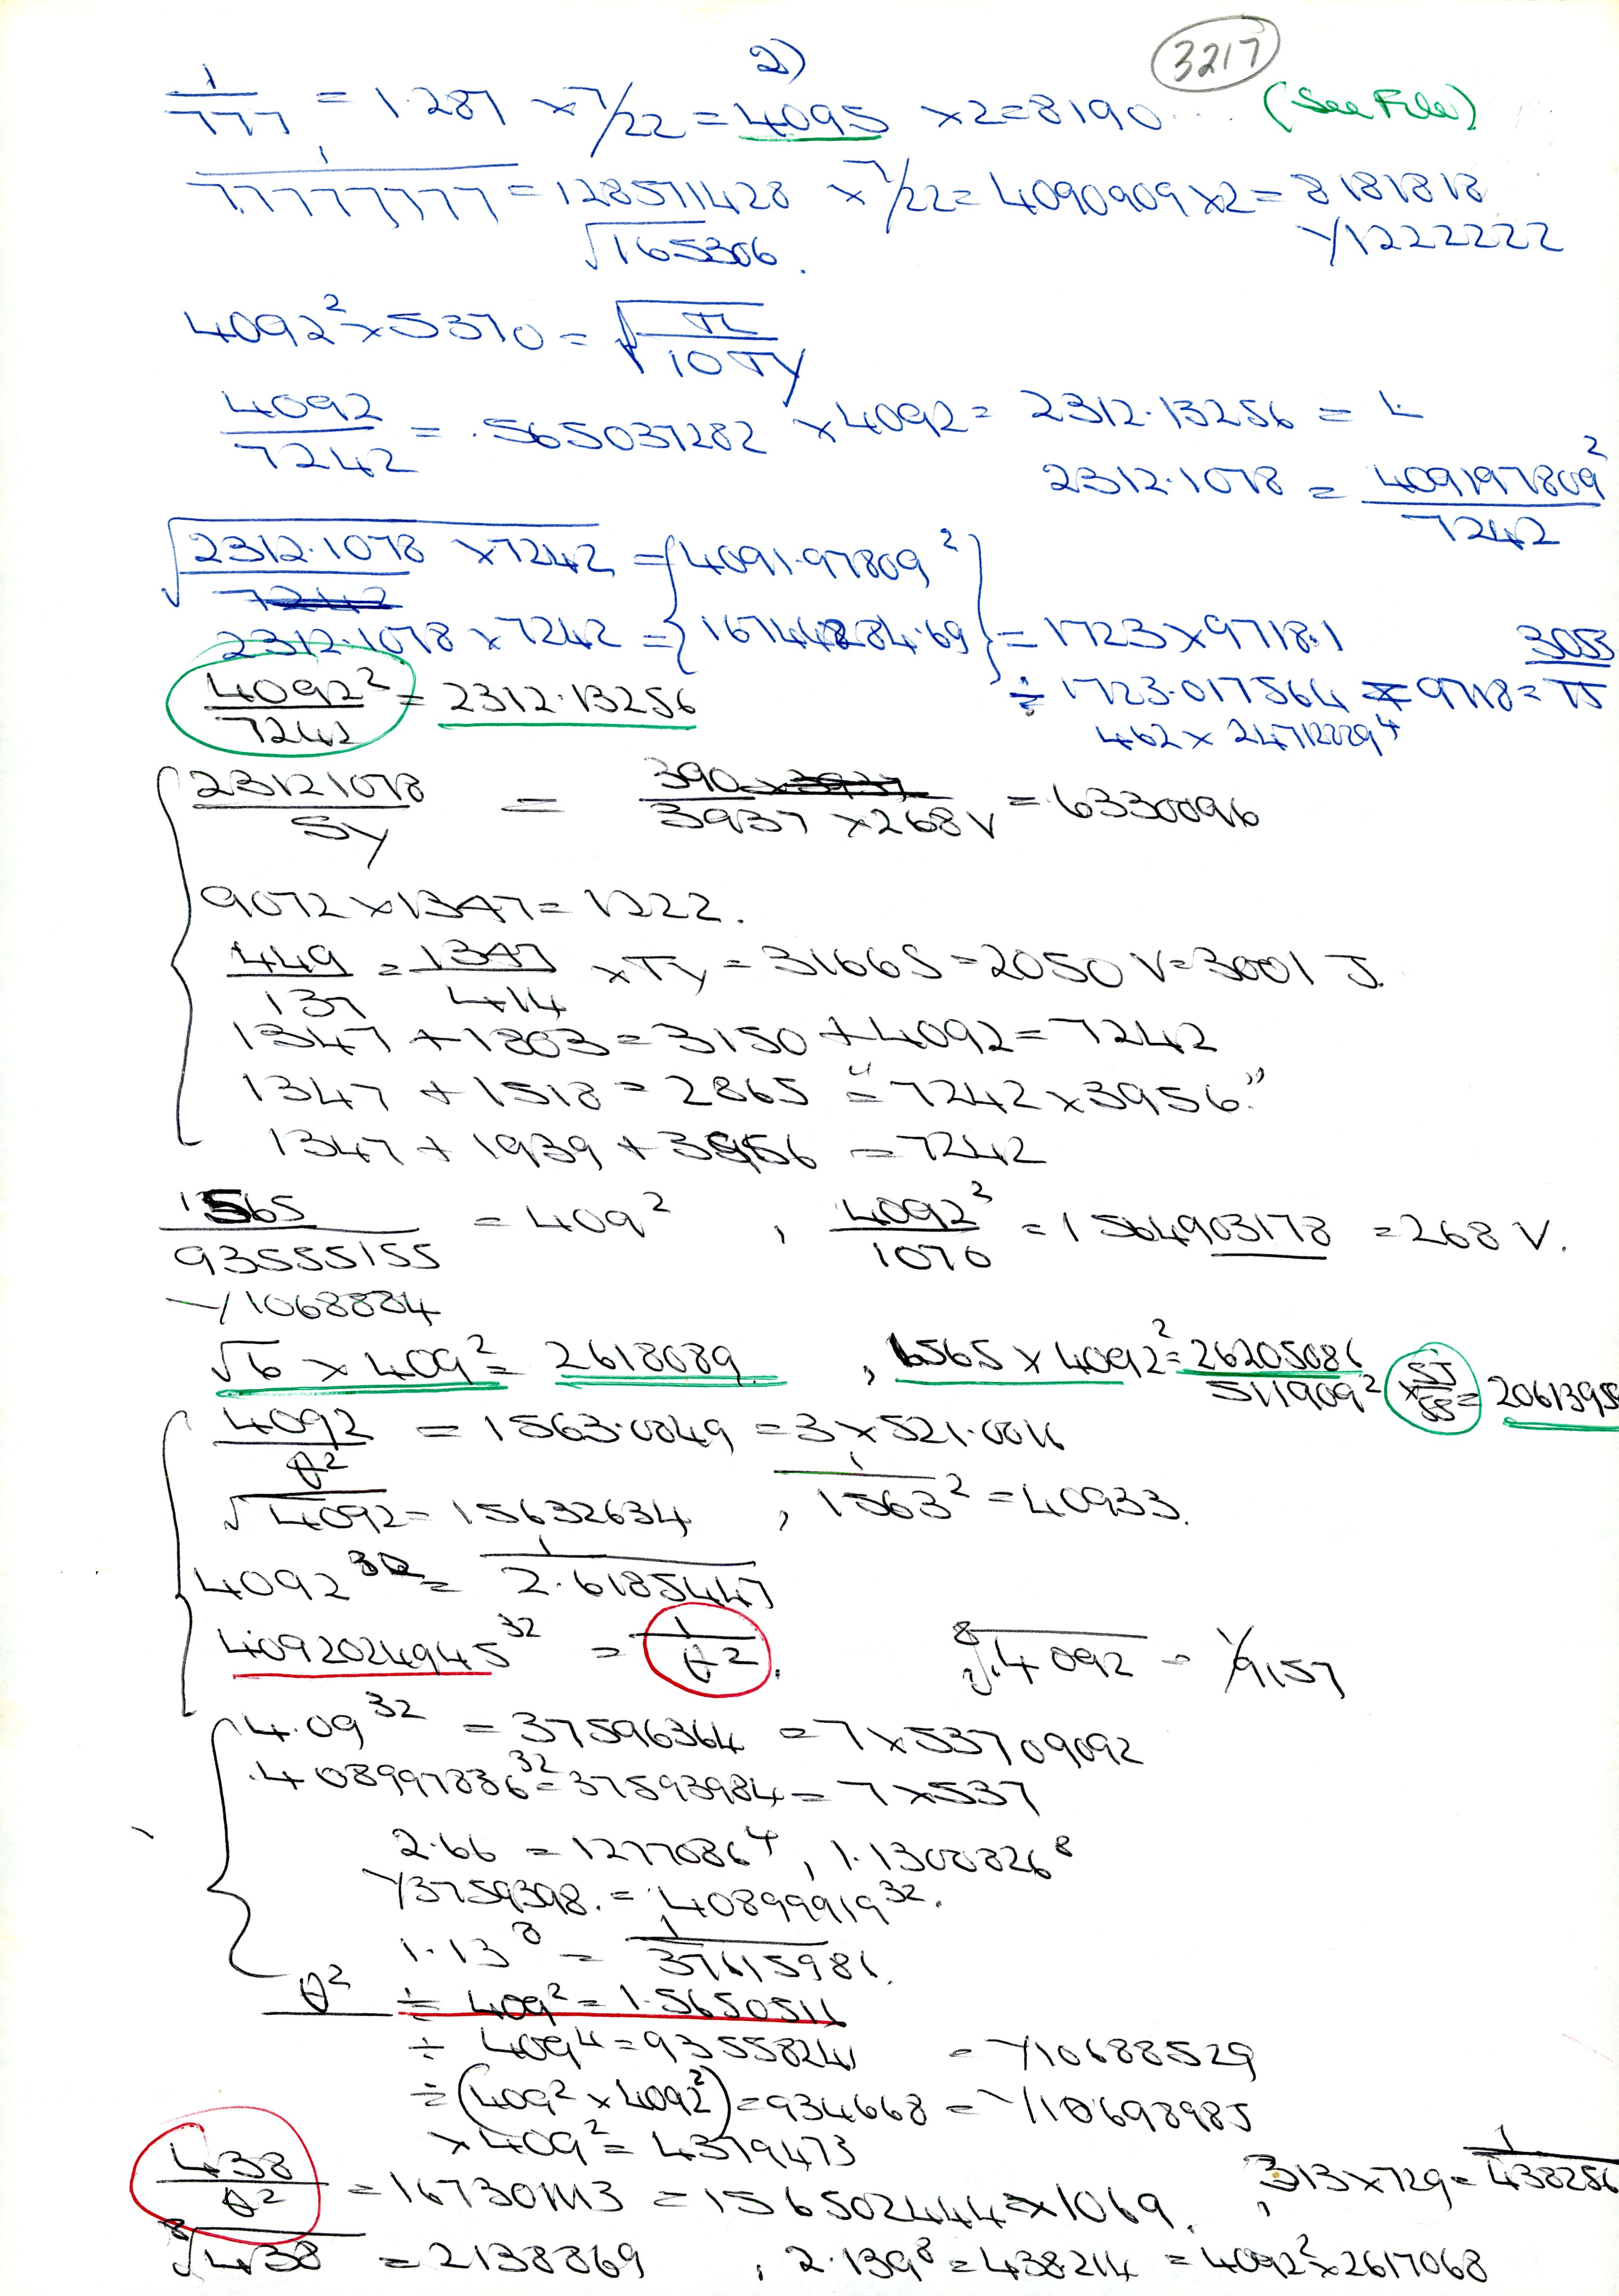 2)
3217
1/777 = 1.287 x 7/22 = 4095 x2=8190... (See File)
1/77777777 = 128571428 x 7/22 = 4090909 x2 = 8181818
√165306. Y1222222
4092² x 5370 = √π/10TY
4092/7242 = .565037282 x 4092 = 2312.13256 = L
2312.1078 = 409197809²/7242
√2312.1078 x 7242 = {4091.97809²}
2312.1078 x 7242 = {16744284.69} = 1723 x 9718.1
÷ 1723.017564 x 9718 = 3055/TJ
462 x 24712229⁴
4092²/7242 = 2312.13256
23121078/5Y = 390/3937 x 268V = .6330096
9072 x 1347 = 1222.
449/137 = 1347/414 x TY = 31665 = 2050 V = 3001 J.
1347 + 1803 = 3150 + 4092 = 7242
1347 + 1518 = 2865 = "7242 x 3956."
1347 + 1939 + 3956 = 7242
1565/93555155 = 409² , 4092²/1070 = 1564903178 = 268 V.
Y1068884
√6 x 409² = 2618089 , 1565 x 4092² = 26205086
511909² x 5J/55 = 2061395
4092/θ² = 1563.0049 = 3 x 521.0016
√4092 = 15632634 , 1/1563² = 40933.
4092³² = 1/2.6185447
4092024945³² = 1/θ². ⁸√.4092 = Y9157
4.09³² = 37596364 = 7 x 53709092
.408997886³² = 37593984 = 7 x 537
2.66 = 1277086⁴, 1.1300826⁸
Y3759398. = .40899919³².
1.13⁸ = 1/37615986.
θ² ÷ 409² = 1.5650511
÷ 409⁴ = 9355824 = Y10688529
÷ (409² x 4092²) = 934668 = Y10698985
x 409² = 4379473
438/θ² = 16730113 = 156502444 x 1069. , 313 x 729 = 1/438256
⁸√438 = 2138869 , 2.139⁸ = 438214 = 4092² x 2617068